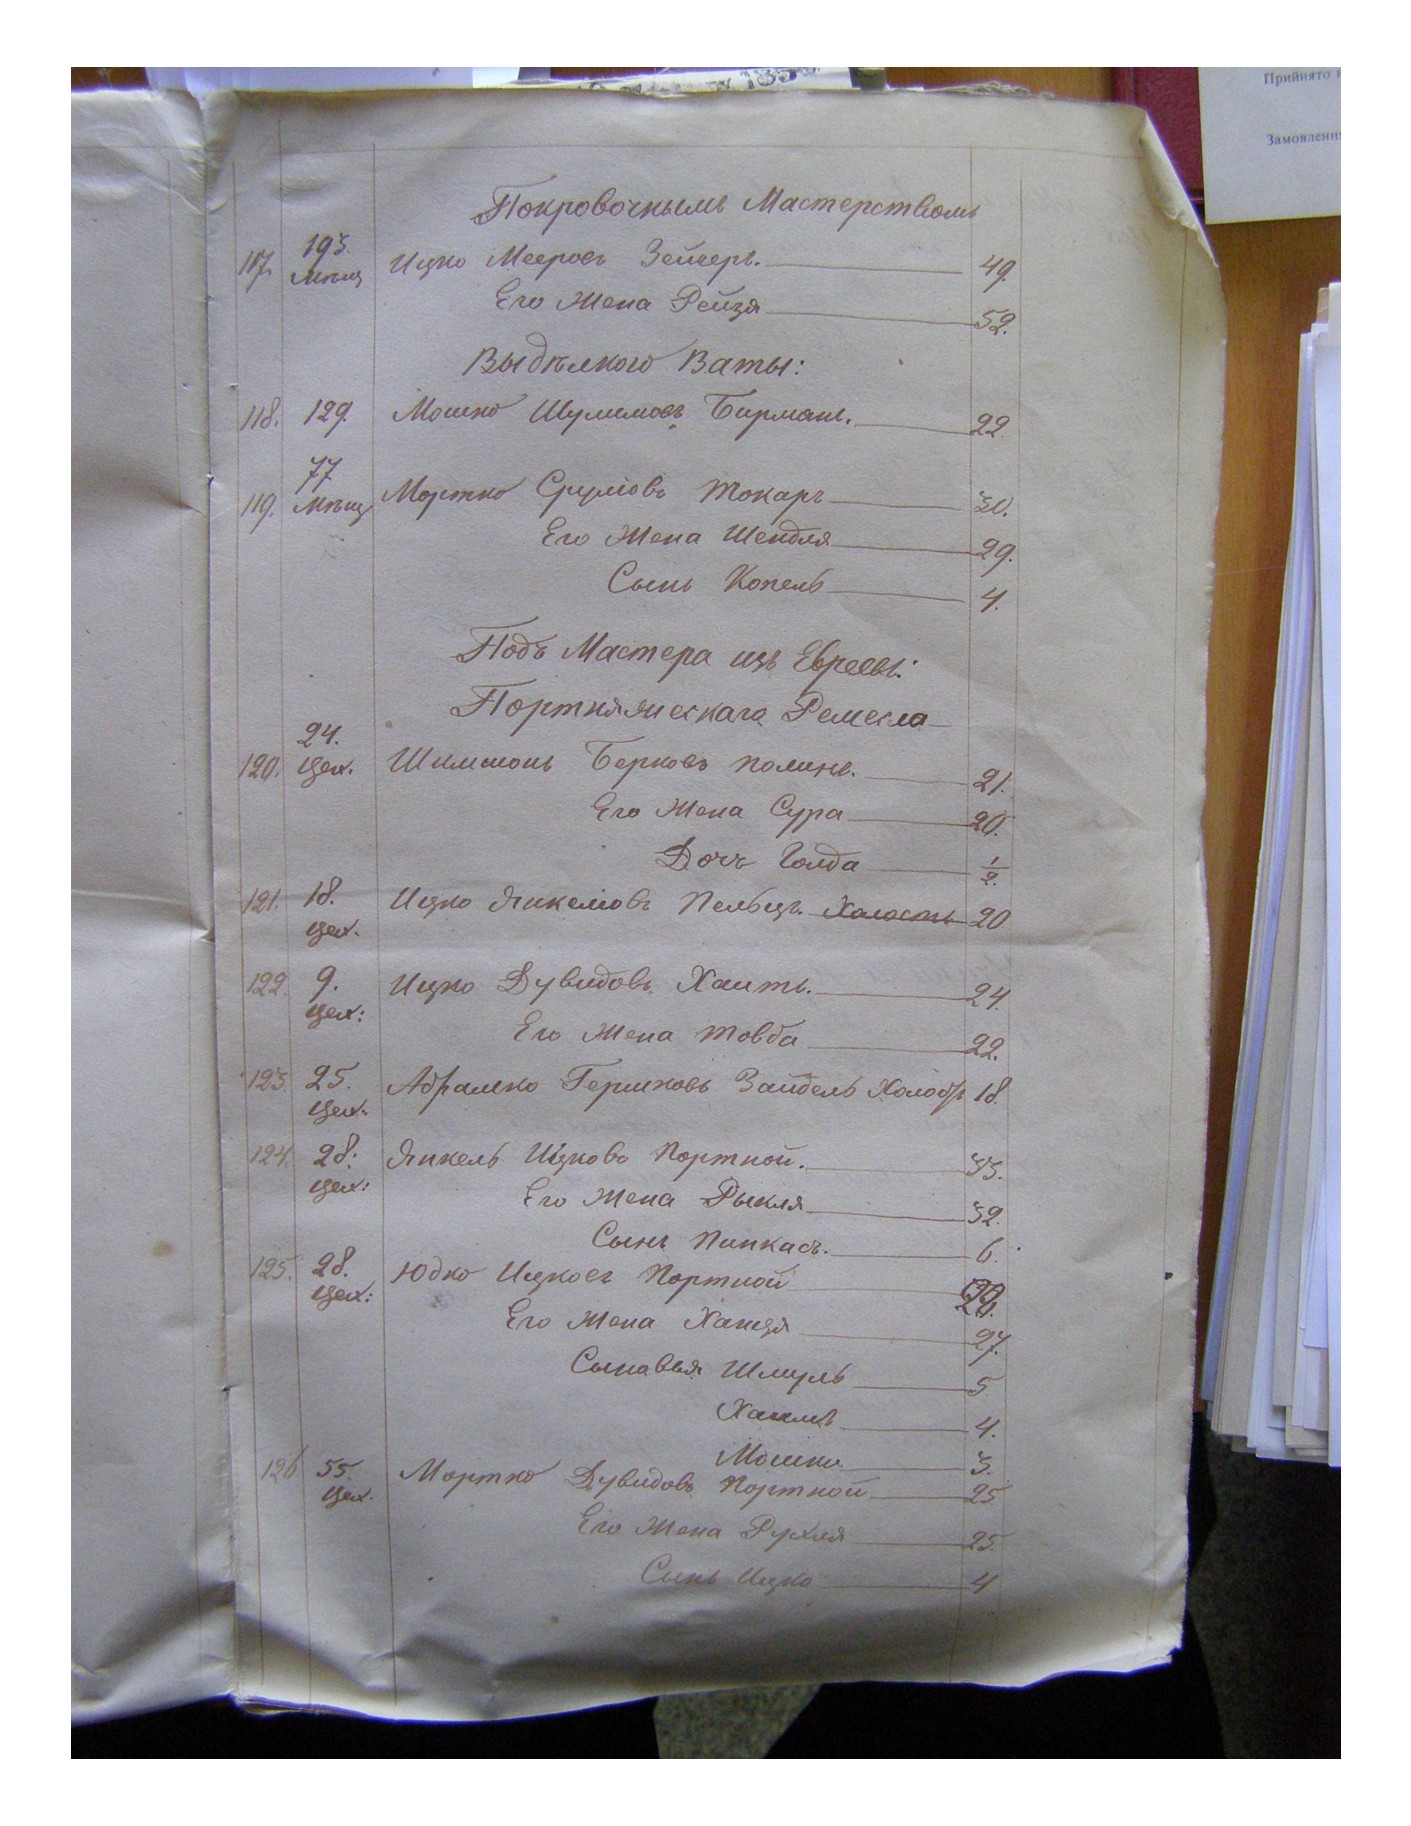 Прийнято
Замовлення
Покровочнымъ Мастерствомъ
193.
117. Мѣщ Ицко Мееровъ Зейгеръ. 49.
Его Жена Рейзя 52.
Выдѣлкою Ваты:
118. 129. Мошко Шулимовъ Бирманъ. 22.
77
119. Мѣщ Мортко Срулiовъ Токаръ 30.
Его Жена Шендля 29.
Сынъ Копель 4.
Подъ Мастера изъ Евреевъ:
Портняжескаго Ремесла
24.
120. Цех. Шимшонъ Берковъ Полинъ. 21.
Его Жена Сура 20.
Дочъ Голда 1/2.
121. 18. Ицко Янкелiовъ Пельцъ. Холостъ 20
цех.
122. 9. Ицко Дувидовъ Хаитъ. 24.
цех:
Его Жена Товба 22.
123. 25. Абрамко Гершковъ Зайдель 18.
Цех:
124. 28: Янкель Ицковъ Портной. 33.
цех:
Его Жена Рыкля 32.
Сынъ Пинкасъ. 6.
125. 28. Юдко Ицковъ Портной
Цех:
Его Жена Ханця 27.
Сынавья Шмуль 5
Хаимъ 4.
Мошко 3.
126 55. Мортко Дувидовъ Портной 25
Цех.
Его Жена Рухля 25.
Синъ Ицко 4